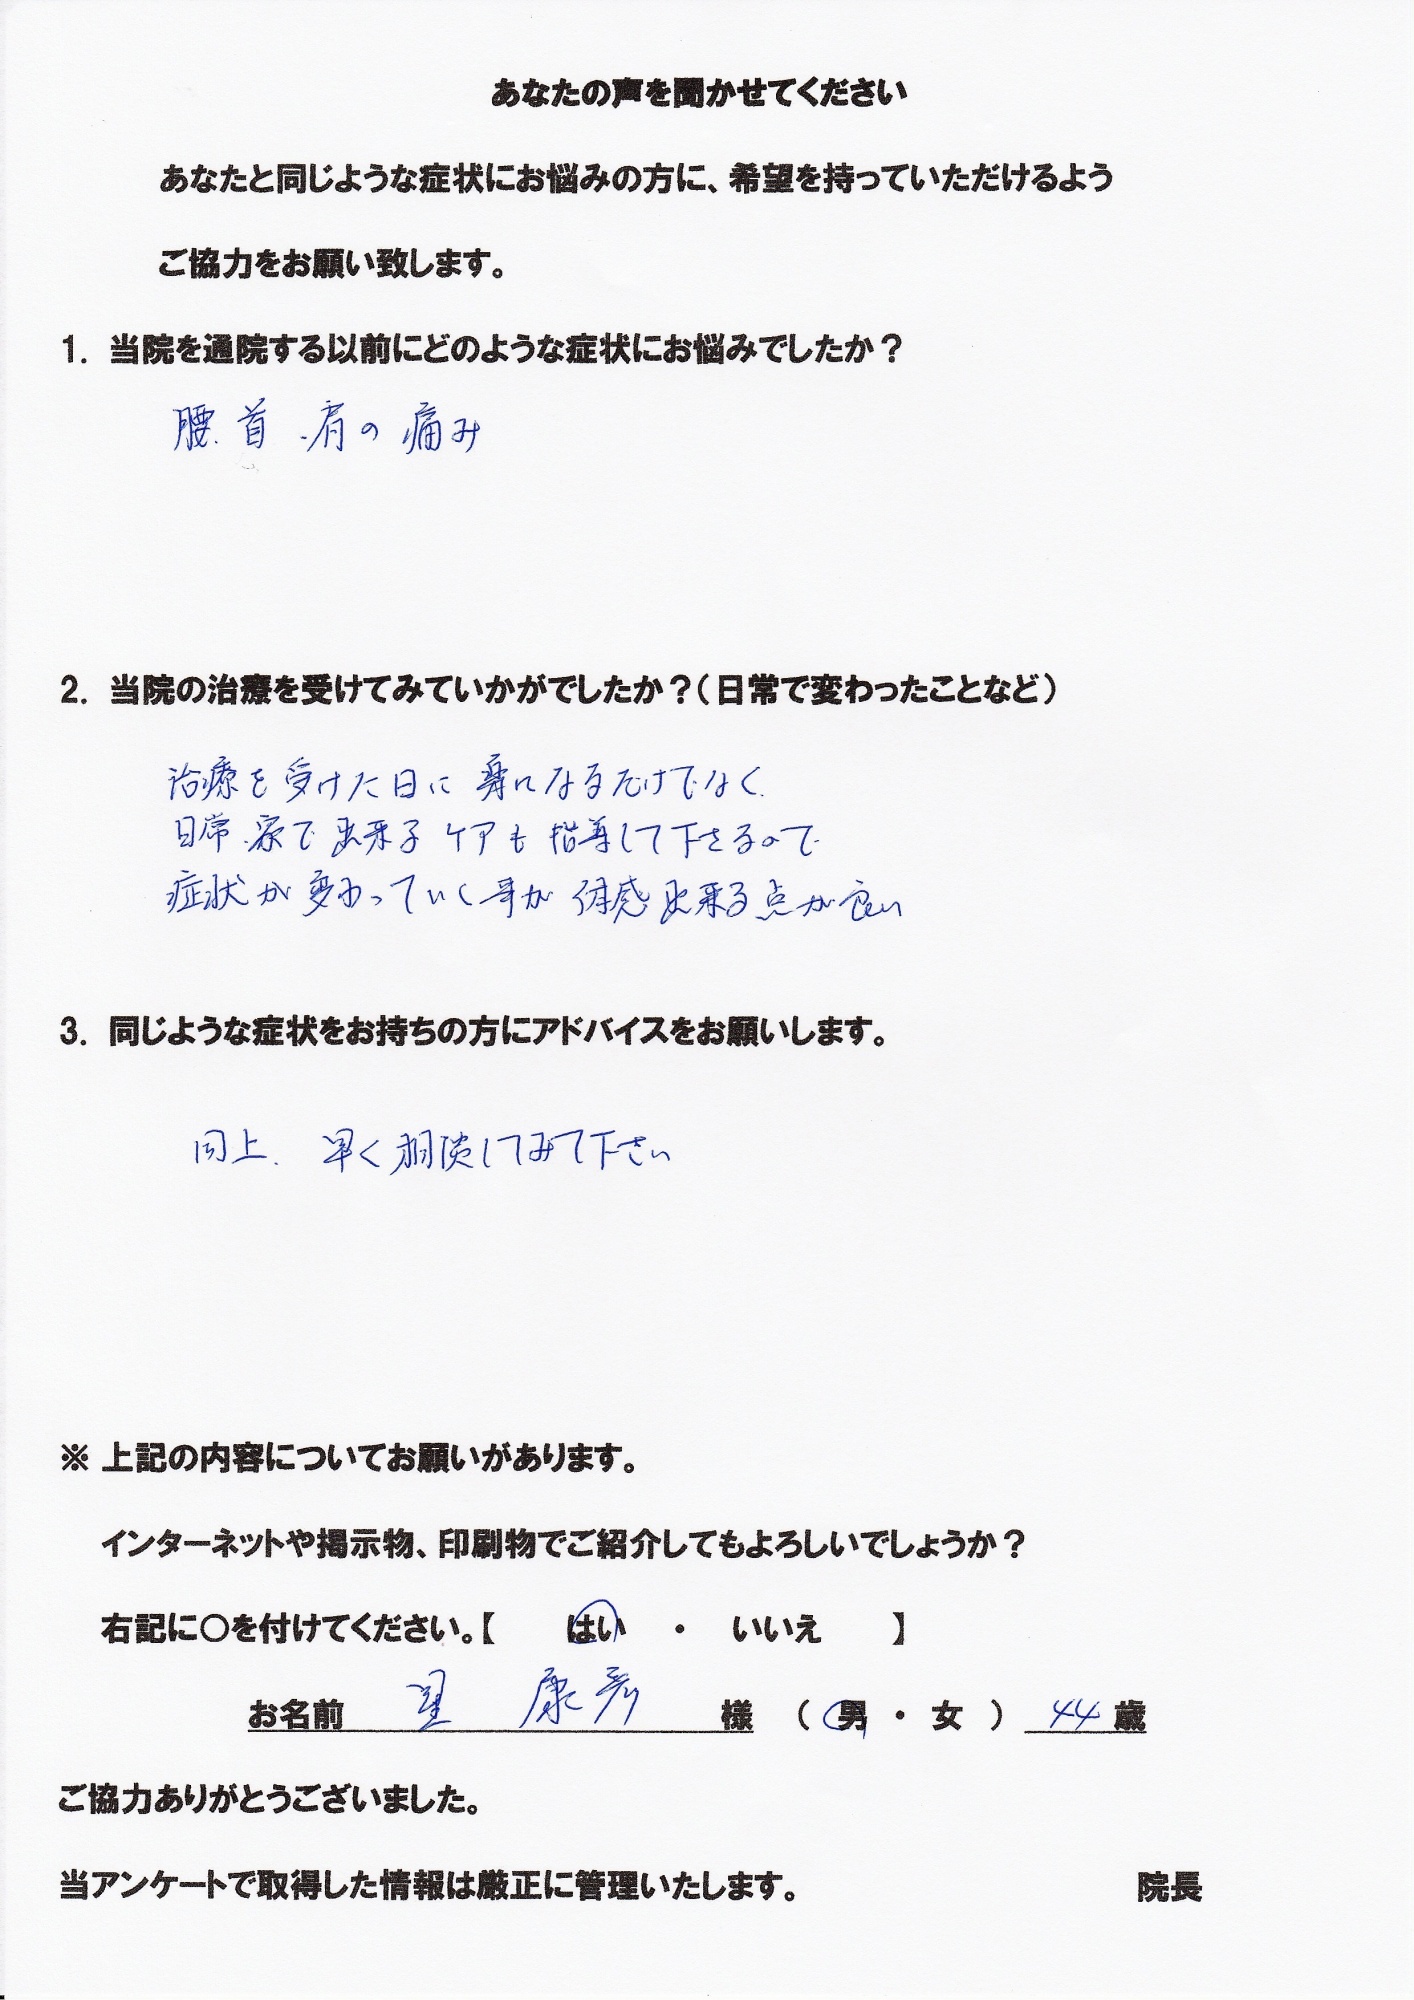 あなたの声を聞かせてください
あなたと同じような症状にお悩みの方に、希望を持っていただけるよう
ご協力をお願い致します。
1. 当院を通院する以前にどのような症状にお悩みでしたか？
腰、首、肩の痛み
2. 当院の治療を受けてみていかがでしたか？（日常で変わったことなど）
治療を受けた日に になるだけでなく、
日常、家で出来る ケアも指導して下さるので
症状が変わっていく事が体感出来る点が良い
3. 同じような症状をお持ちの方にアドバイスをお願いします。
同上、早く相談してみて下さい
※ 上記の内容についてお願いがあります。
インターネットや掲示物、印刷物でご紹介してもよろしいでしょうか？
右記に○を付けてください。【 はい ・ いいえ 】
お名前 康彦 様 （ 男 ・ 女 ） 44 歳
ご協力ありがとうございました。
当アンケートで取得した情報は厳正に管理いたします。 院長